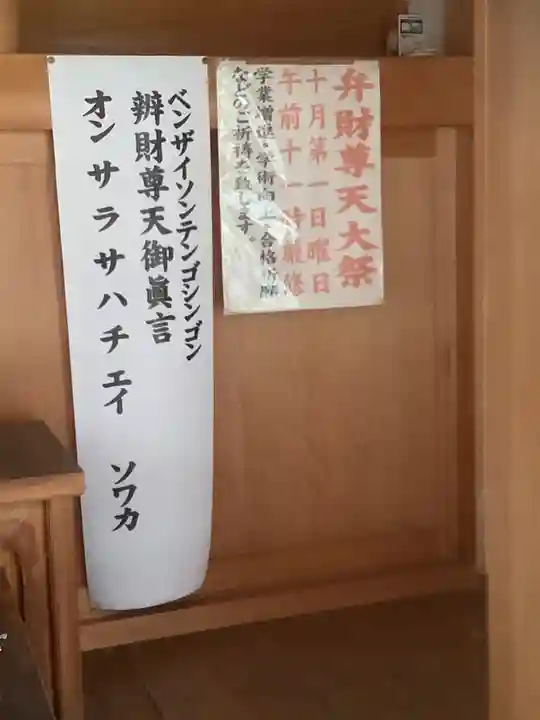 弁財尊天大祭
十月第一日曜日
午前十一時厳修
学業増進・学術向上・合格祈願
などのご祈祷を致します。
ベンザイソンテンゴシンゴン
辨財尊天御眞言
オン サラサハチエイ ソワカ